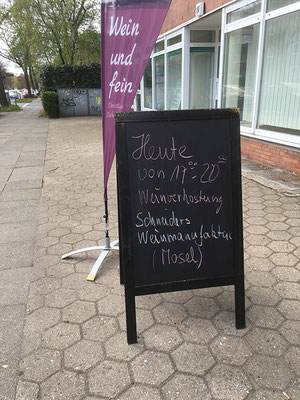 Wein
und
fein
Heute
von 17⁰⁰-20⁰⁰
Weinverkostung
Schneiders
Weinmanufaktur
(Mosel)